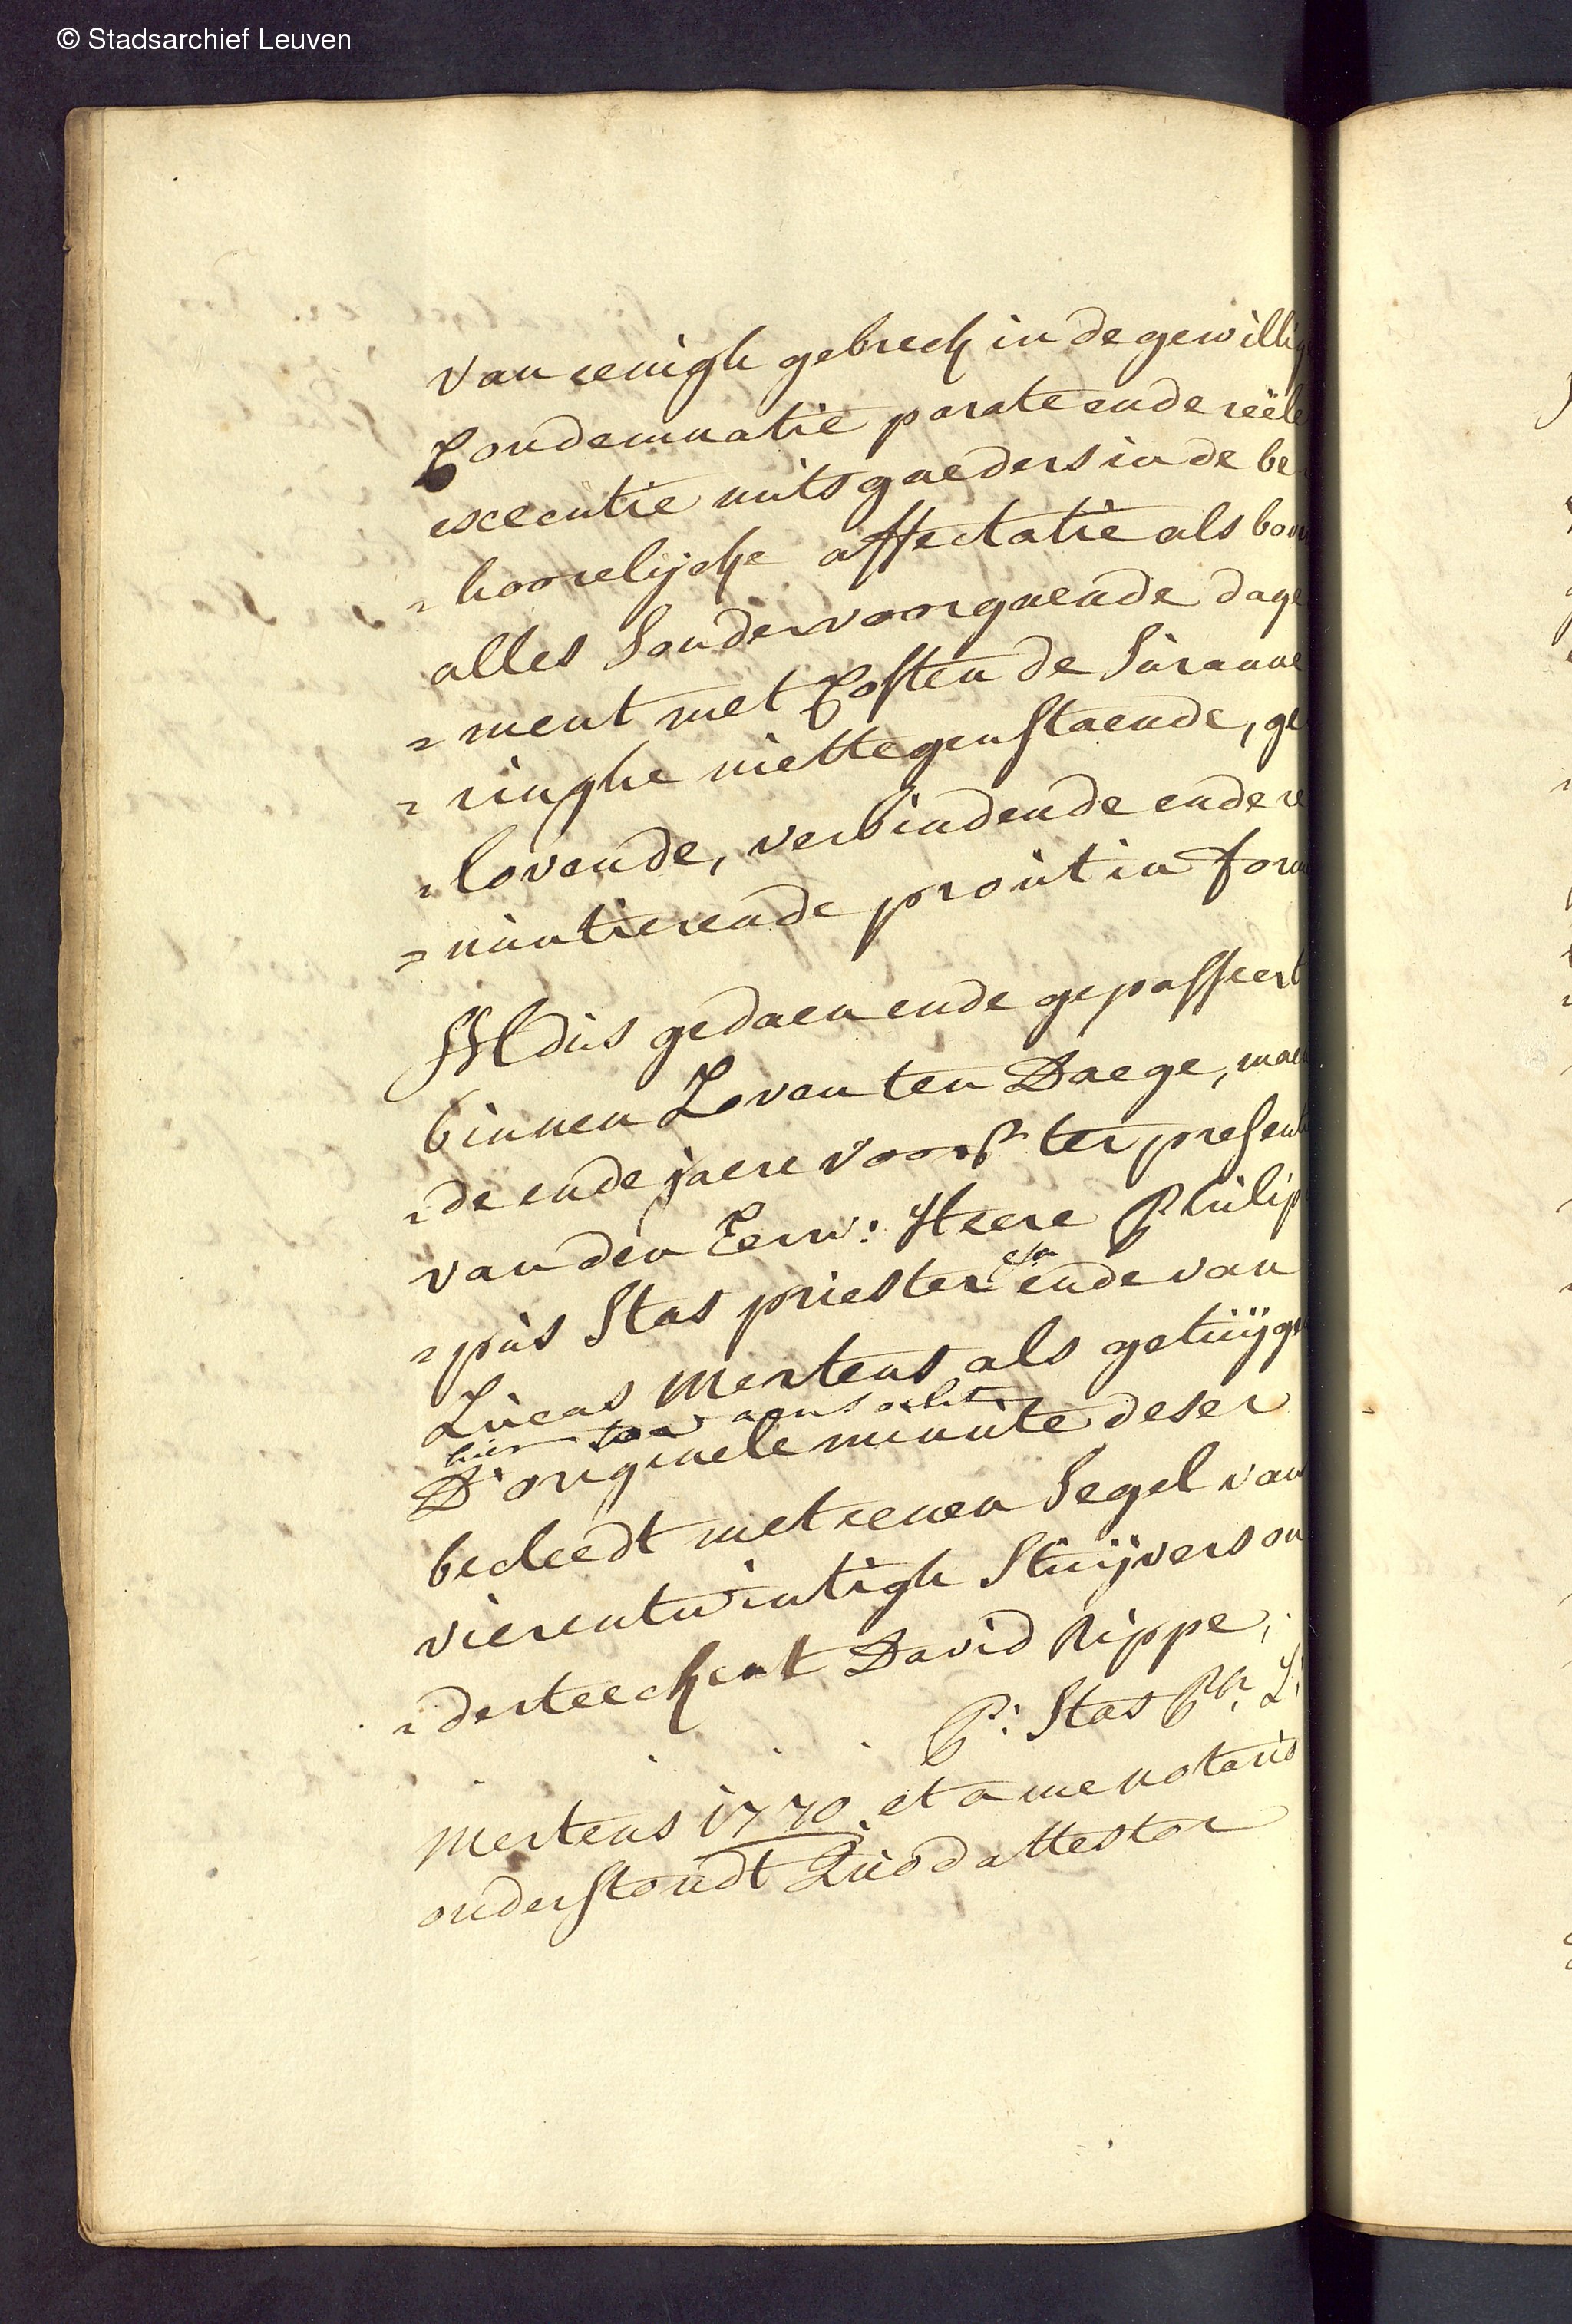 © Stadsarchief Leuven
van eenigh gebreck in de gewillig
Condemnatie parate ende reële
executie mitsgaeders in de be
=hoorelijcke affectatie als bove
alles sonder voorgaende dage
=ment met Costen de suranne
=ringhe niettegenstaende, ge
=lovende, verbindende ende re
=nuntierende proùt in form
Aldùs gedaen ende gepasseert
binnen Loven ten Daege, maen
=de ende jaere voorst ter presenti
van den Eerw: Heere Philip
=pùs Stas priester etc ende van
Lùcas Mertens als getùÿgen
hier toe aensocht
D'originele minùte deser
becleedt met eenen Segel van
vierentwintigh Stùÿvers on
=derteeckent David Rippe,
P: Stas Pbr L:
Mertens 1770 et a me notario
onderstondt Qùod attestor